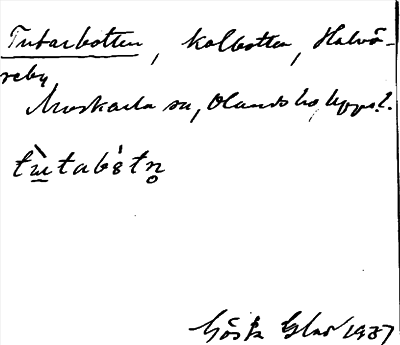 Tutarbotten, kolbotten, Halvö-
reby
Munkarta su, Olands hd, Uppl.
tù̱tabètn̥
Gösta Glas 1937